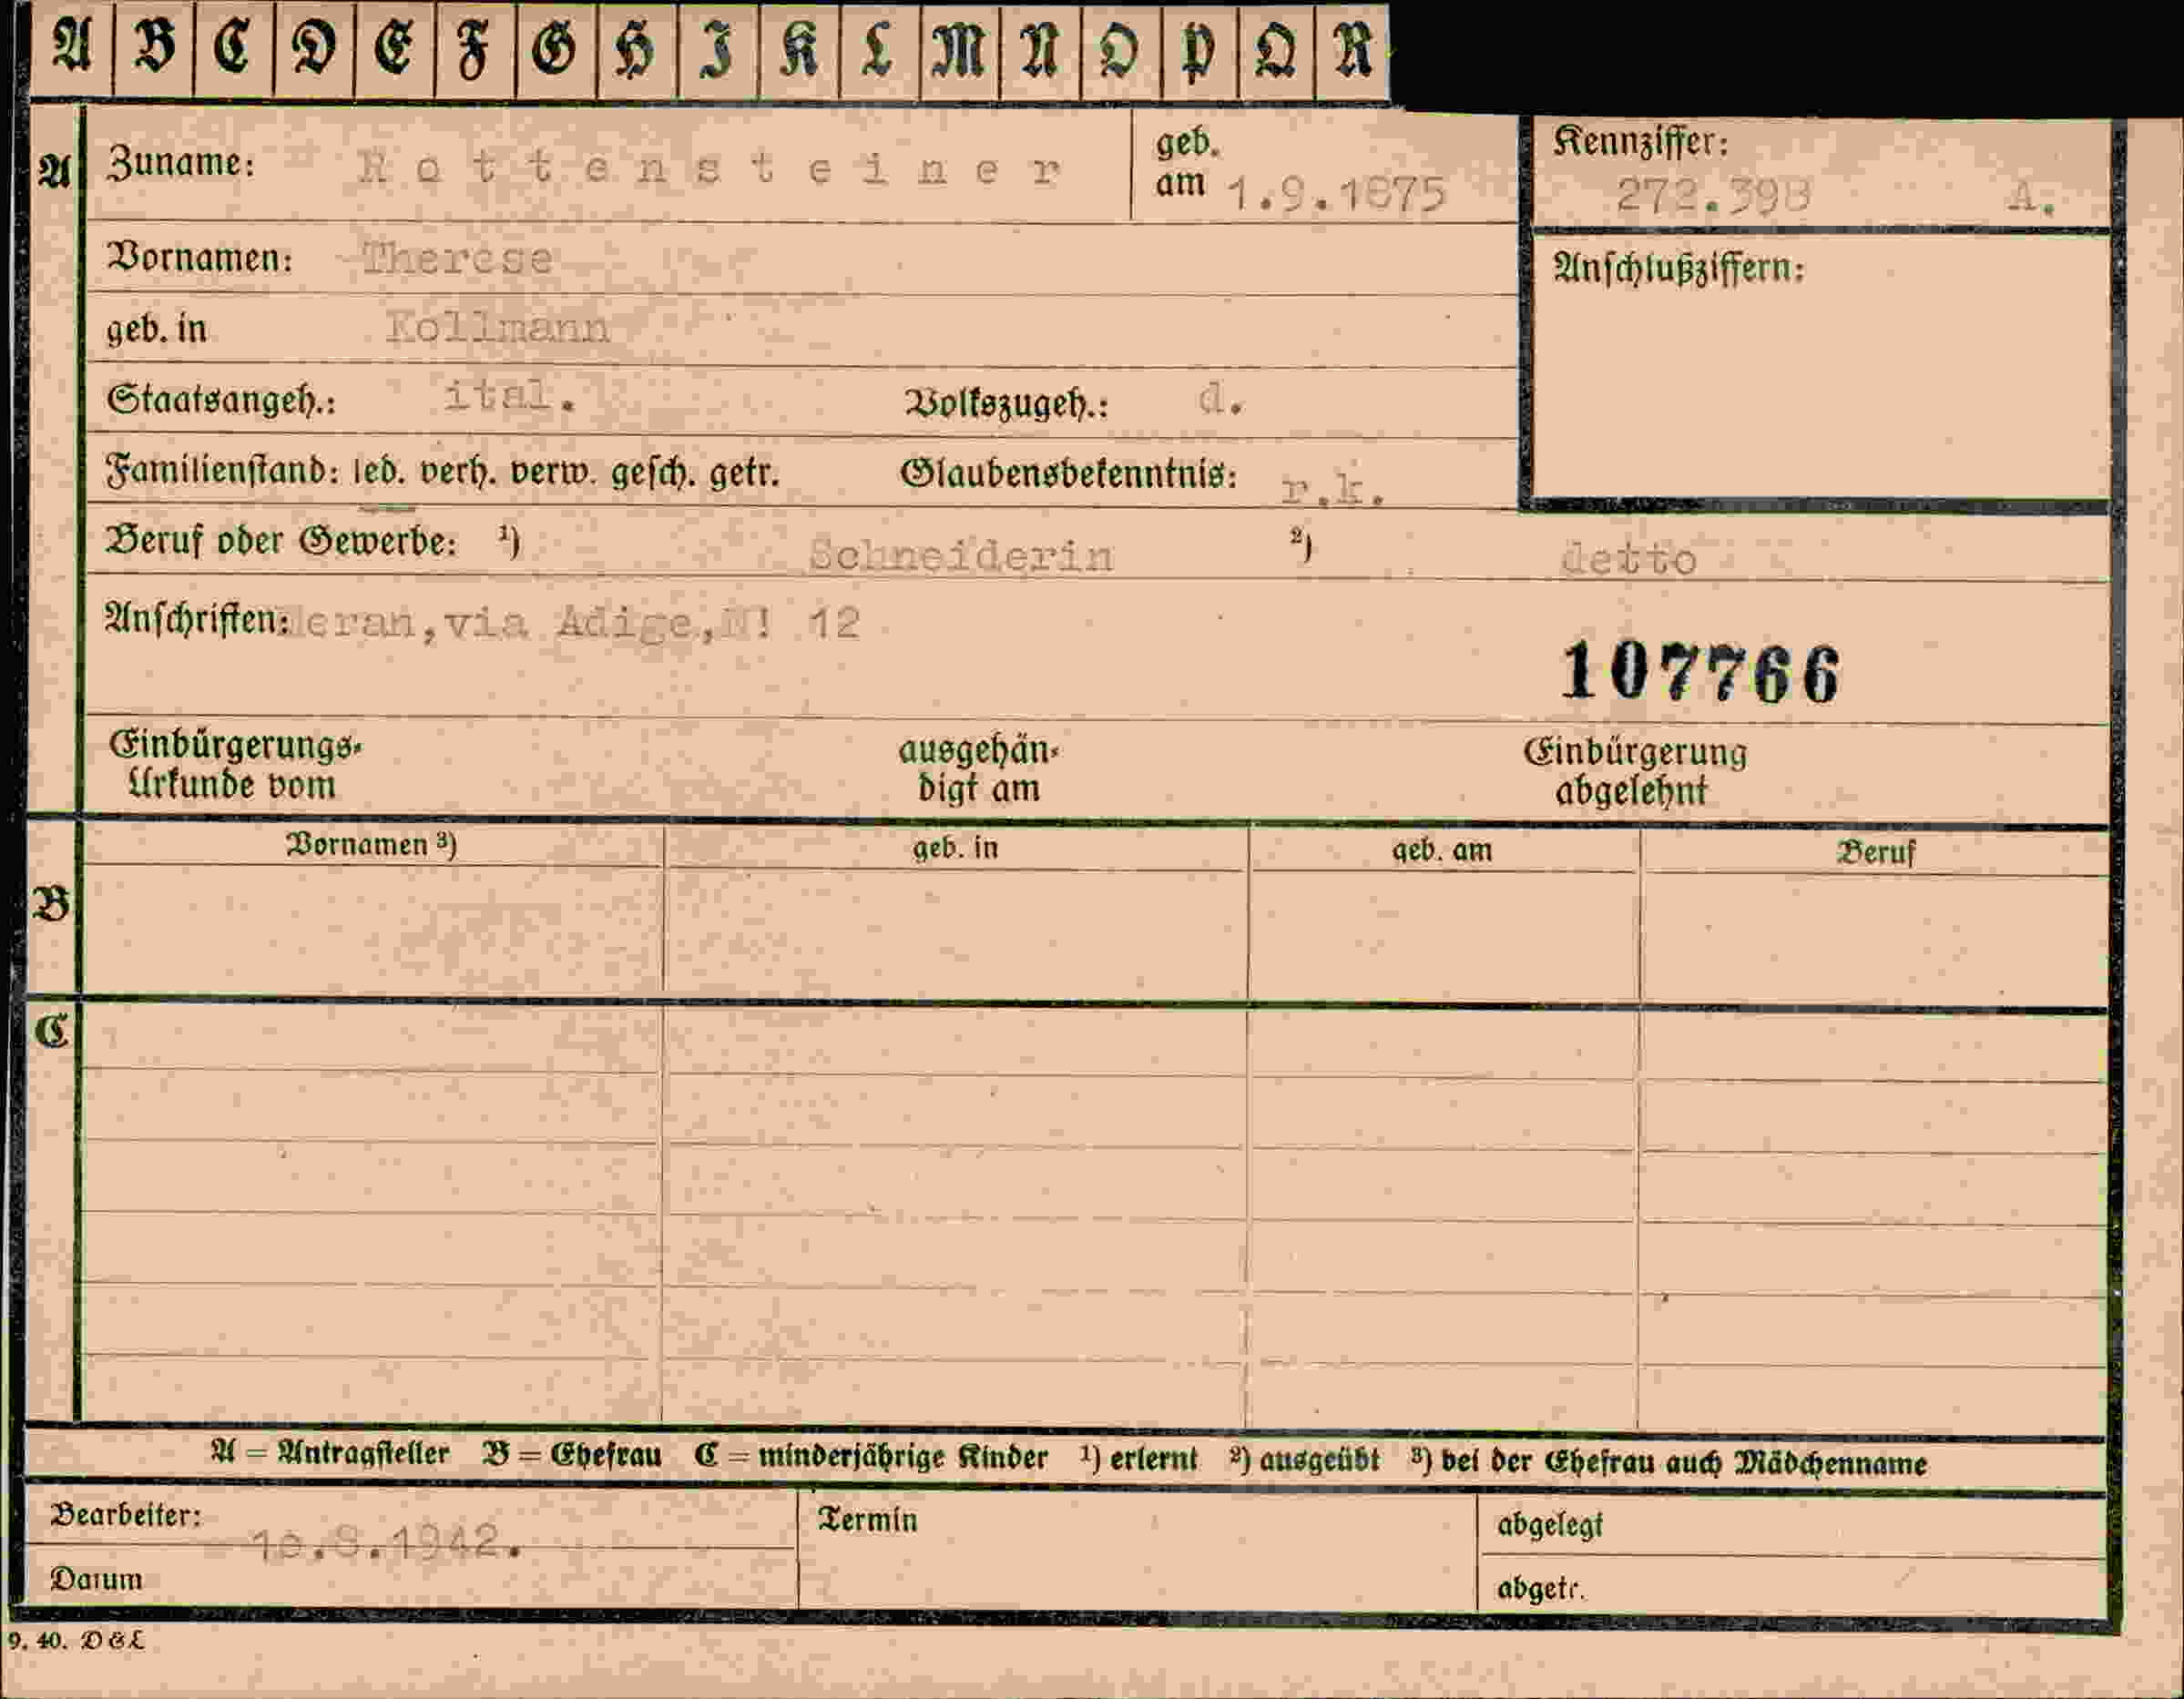 A B C D E F G H I K L M N O P Q R
A Zuname: Rottensteiner geb. am 1.9.1875 Kennziffer: 272.398 A.
Vornamen: Therese Anschlußziffern:
geb. in Kollmann
Staatsangeh.: ital. Volkszugeh.: d.
Familienstand: led. verh. verw. gesch. getr. Glaubensbekenntnis: r.k.
Beruf oder Gewerbe: 1) Schneiderin 2) detto
Anschriften: Meran, via Adige, N! 12
107766
Einbürgerungs- ausgehän- Einbürgerung
Urkunde vom digt am abgelehnt
Vornamen 3) geb. in geb. am Beruf
B
C
A = Antragsteller B = Ehefrau C = minderjährige Kinder 1) erlernt 2) ausgeübt 3) bei der Ehefrau auch Mädchenname
Bearbeiter: Termin abgelegt
.8.1942.
Datum abgetr.
9. 40. D&L